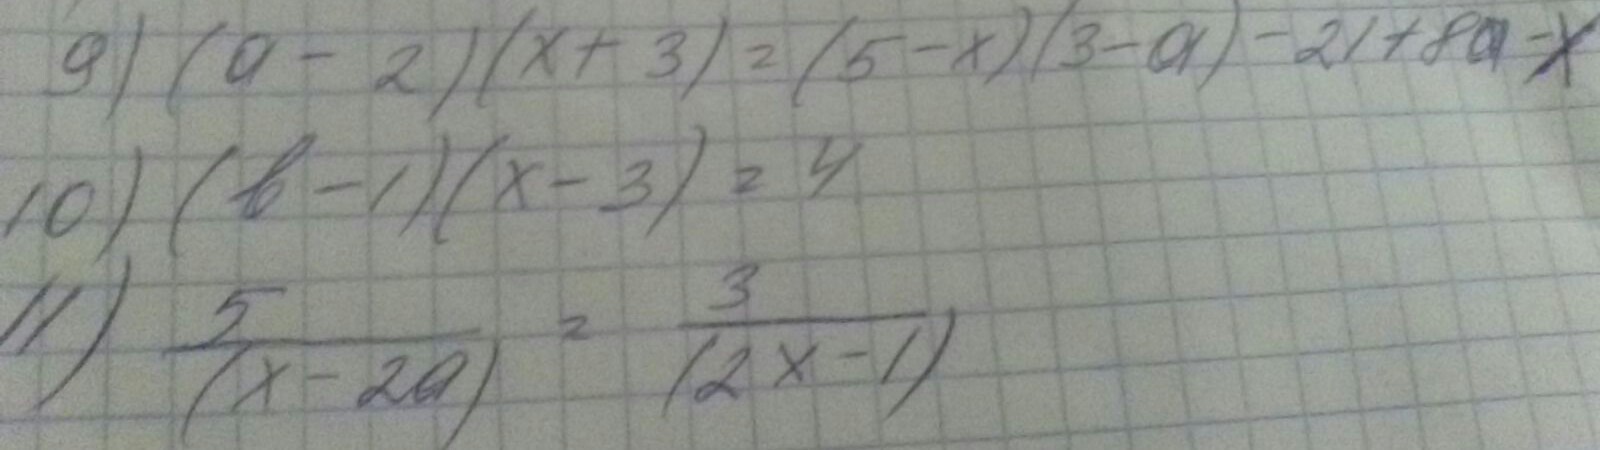 9) (a - 2)(x + 3) = (5 - x)(3 - a) - 21 + 8a - x
10) (b - 1)(x - 3) = 4
11) 5/(x - 2a) = 3/(2x - 1)